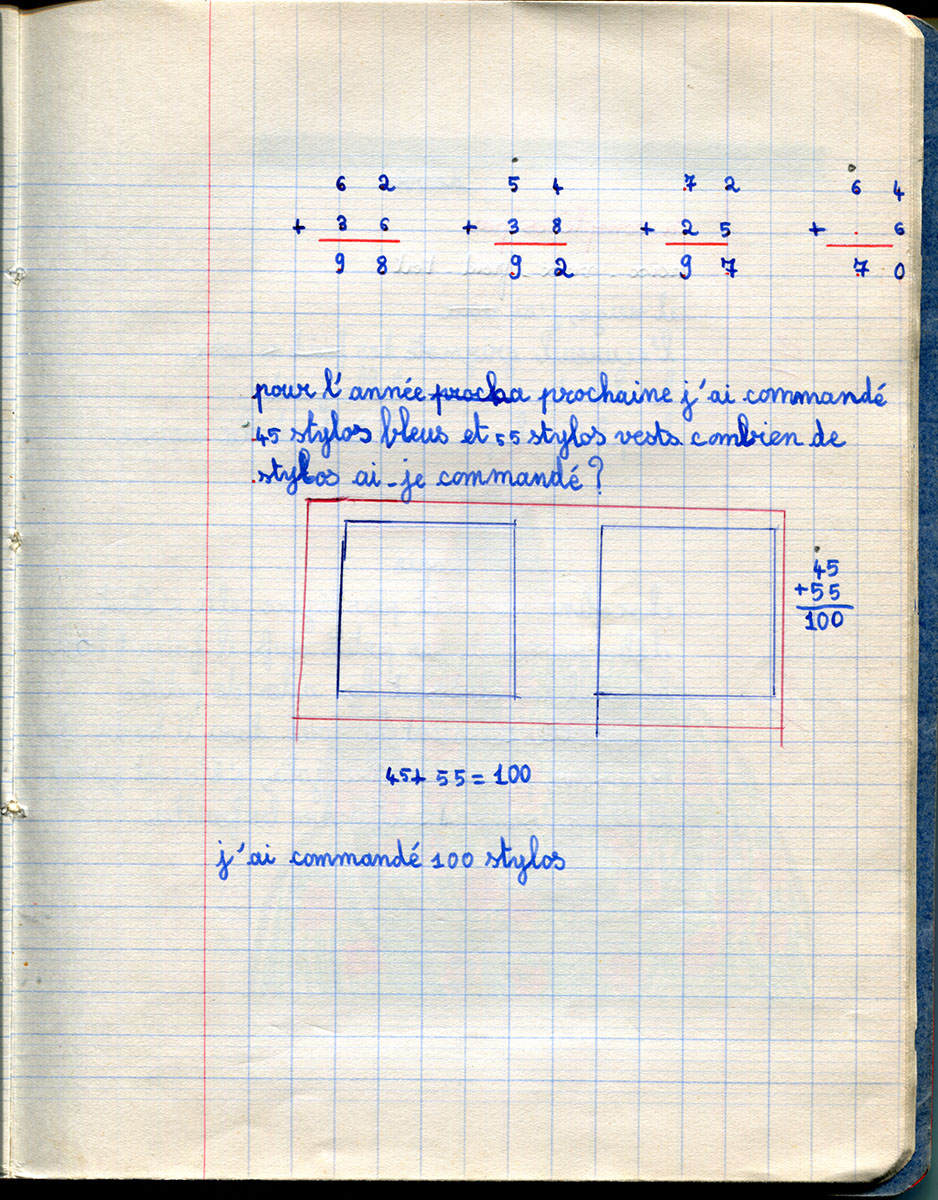 6 2 5 4 7 2 6 4
+ 3 6 + 3 8 + 2 5 + . 6
9 8 9 2 9 7 7 0
pour l'année procha prochaine j'ai commandé
45 stylos bleus et 55 stylos verts combien de
stylos ai-je commandé?
45
+55
100
45+ 55 = 100
j'ai commandé 100 stylos